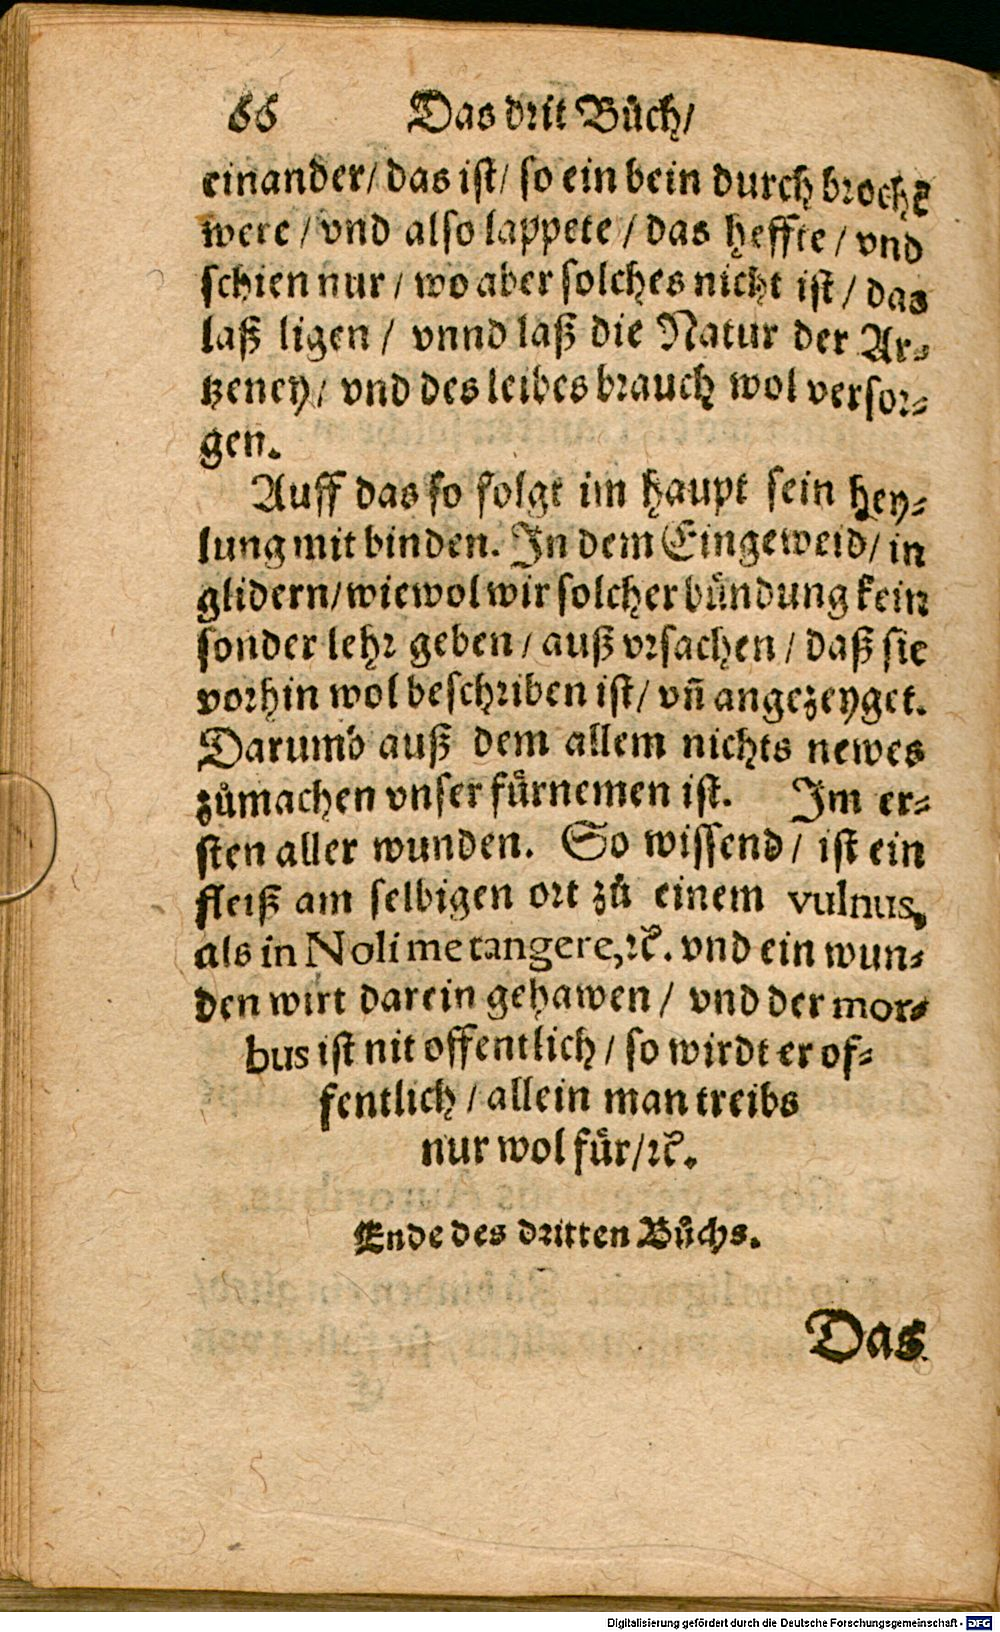 66 Das drit Bůch/
einander/ das ist/ so ein bein durch brochẽ
were / vnd also lappete / das heffte / vnd
schien nur / wo aber solches nicht ist / das
laß ligen / vnnd laß die Natur der Ar⸗
tzeney/ vnd des leibes brauch wol versor⸗
gen.
Auff das so folgt im haupt sein hey⸗
lung mit binden. In dem Eingeweid/ in
glidern/ wiewol wir solcher bündung kein
sonder lehr geben / auß vrsachen / daß sie
vorhin wol beschriben ist/ vñ angezeyget.
Darumb auß dem allem nichts newes
zůmachen vnser fürnemen ist. Im er⸗
sten aller wunden. So wissend / ist ein
fleiß am selbigen ort zů einem vulnus,
als in Noli me tangere, ꝛc. vnd ein wun⸗
den wirt darein gehawen / vnd der mor⸗
bus ist nit offentlich / so wirdt er of⸗
fentlich / allein man treibs
nur wol für/ ꝛc.
Ende des dritten Bůchs.
Das
Digitalisierung gefördert durch die Deutsche Forschungsgemeinschaft - DFG